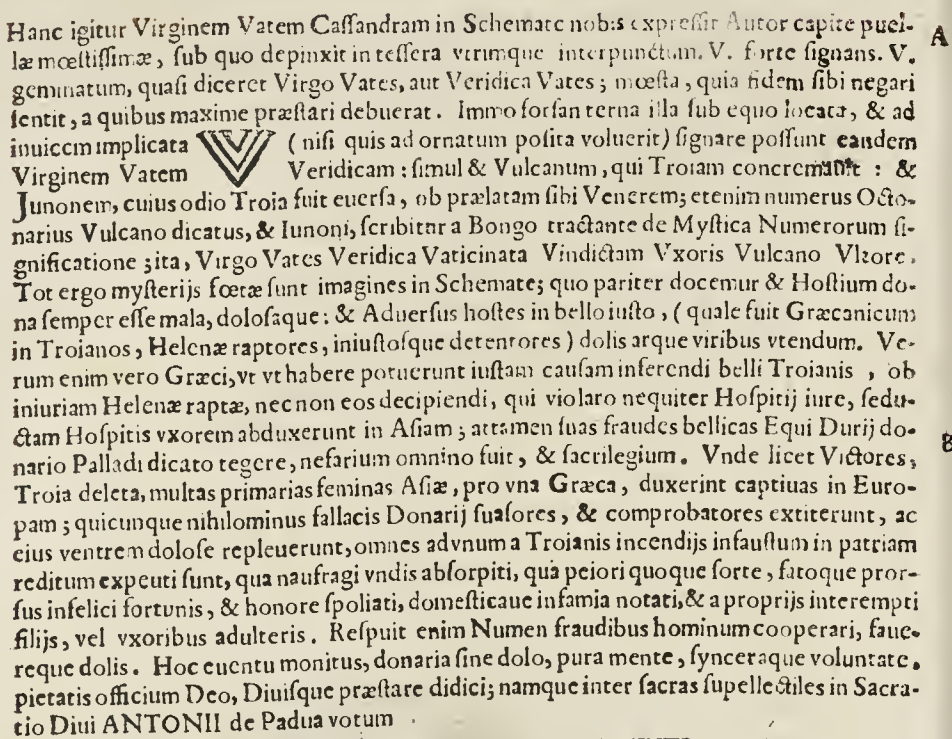 Hanc igitur Virginem Vatem Caſſandram in Schemate nobis expreſſit Autor capite puel-
læ mœſtiſſimæ, ſub quo depinxit in teſſera vtrimque interpunctum. V. forte ſignans. V. A
geminatum, quaſi diceret Virgo Vates, aut Veridica Vates; mœſta, quia fidem ſibi negari
ſentit, a quibus maxime præſtari debuerat. Immo forſan terna illa ſub equo locata, & ad
inuicem implicata VVV (niſi quis ad ornatum poſita voluerit) ſignare poſſunt eandem
Virginem Vatem Veridicam: ſimul & Vulcanum, qui Troiam : &
Junonem, cuius odio Troia fuit euerſa, ob prælatam ſibi Venerem; etenim numerus Octo-
narius Vulcano dicatus, & Iunoni, ſcribitur a Bongo tractante de Myſtica Numerorum ſi-
gnificatione; ita, Virgo Vates Veridica Vaticinata Vindictam Vxoris Vulcano Vltore.
Tot ergo myſterijs fœtæ ſunt imagines in Schemate; quo pariter docemur & Hoſtium do-
na ſemper eſſe mala, doloſaque: & Aduerſus hoſtes in bello iuſto, (quale fuit Græcanicum
in Troianos, Helenæ raptores, iniuſtoſque detentores) dolis atque viribus vtendum. Ve-
rum enim vero Græci, vt vt habere potuerunt iuſtam cauſam inferendi belli Troianis, ob
iniuriam Helenæ raptæ, nec non eos decipiendi, qui violato nequiter Hoſpitij iure, ſedu-
ctam Hoſpitis vxorem abduxerunt in Aſiam; attamen ſuas fraudes bellicas Equi Durij do- B
nario Palladi dicato tegere, nefarium omnino fuit, & ſacrilegium. Vnde licet Victores,
Troia deleta, multas primarias feminas Aſiæ, pro vna Græca, duxerint captiuas in Euro-
pam; quicunque nihilominus fallacis Donarij ſuaſores, & comprobatores extiterunt, ac
eius ventrem doloſe repleuerunt, omnes ad vnum a Troianis incendijs infauſtum in patriam
reditum experti ſunt, qua naufragi vndis abſorpti, qua peiori quoque ſorte, fatoque pror-
ſus infelici fortunis, & honore ſpoliati, domeſticaue infamia notati, & a proprijs interempti
filijs, vel vxoribus adulteris. Reſpuit enim Numen fraudibus hominum cooperari, faue-
reque dolis. Hoc euentu monitus, donaria ſine dolo, pura mente, ſynceraque voluntate,
pietatis officium Deo, Diuiſque præſtare didici; namque inter ſacras ſupellectiles in Sacra-
tio Diui ANTONII de Padua votum